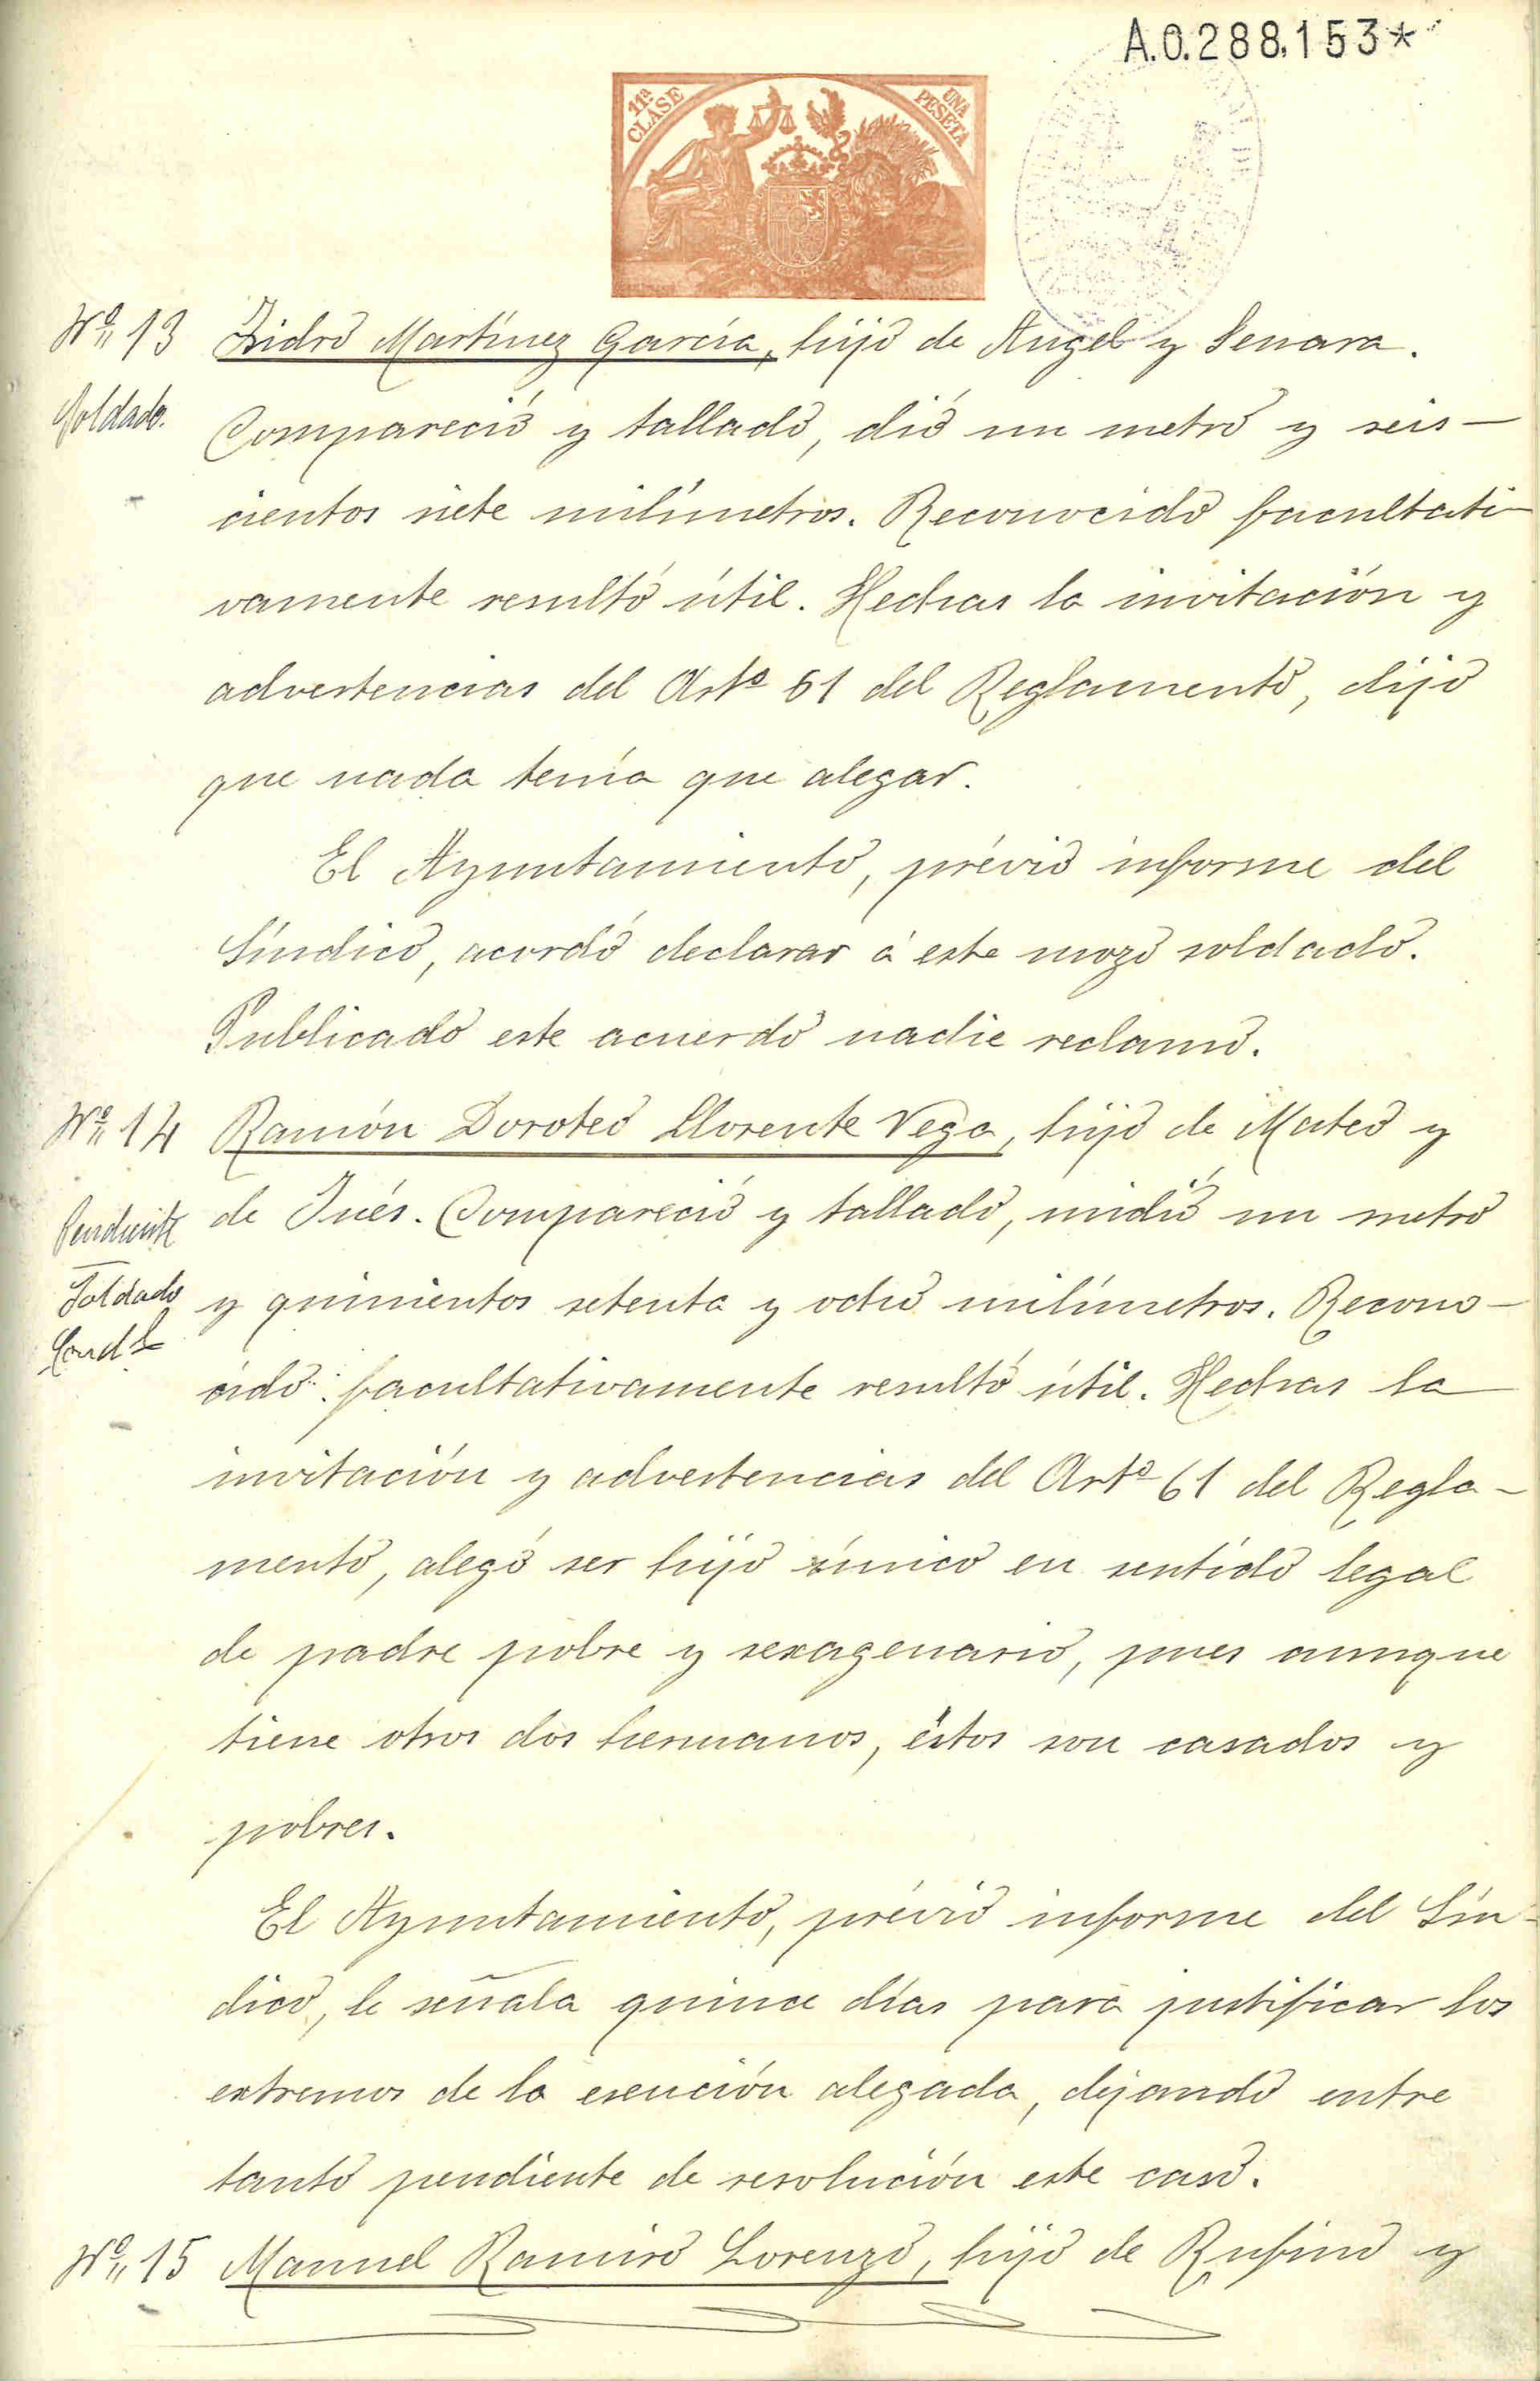 A.0.288,153*
11ª CLASE
UNA PESETA
Nº 13 Isidro Martínez García, hijo de Angel y Senara.
Soldado. Compareció y tallado, dió un metro y seis-
cientos siete milímetros. Reconocido facultati-
vamente resultó útil. Hechas la invitación y
advertencias del Artº 61 del Reglamento, dijo
que nada tenía que alegar.
El Ayuntamiento, prévio informe del
Síndico, acordó declarar á este mozo soldado.
Publicado este acuerdo nadie reclamó.
Nº 14 Ramón Doroteo Llorente Vega, hijo de Mateo y
Pendiente de Inés. Compareció y tallado, midió un metro
Soldado y quinientos setenta y ocho milímetros. Recono-
Cond.l
cido facultativamente resultó útil. Hechas la
invitación y advertencias del Artº 61 del Regla-
mento, alegó ser hijo único en sentido legal
de padre pobre y sexagenario, pues aunque
tiene otros dos hermanos, éstos son casados y
pobres.
El Ayuntamiento, prévio informe del Sín-
dico, le señala quince días para justificar los
extremos de la exención alegada, dejando entre
tanto pendiente de resolución este caso.
Nº 15 Manuel Ramiro Lorenzo, hijo de Rufino y